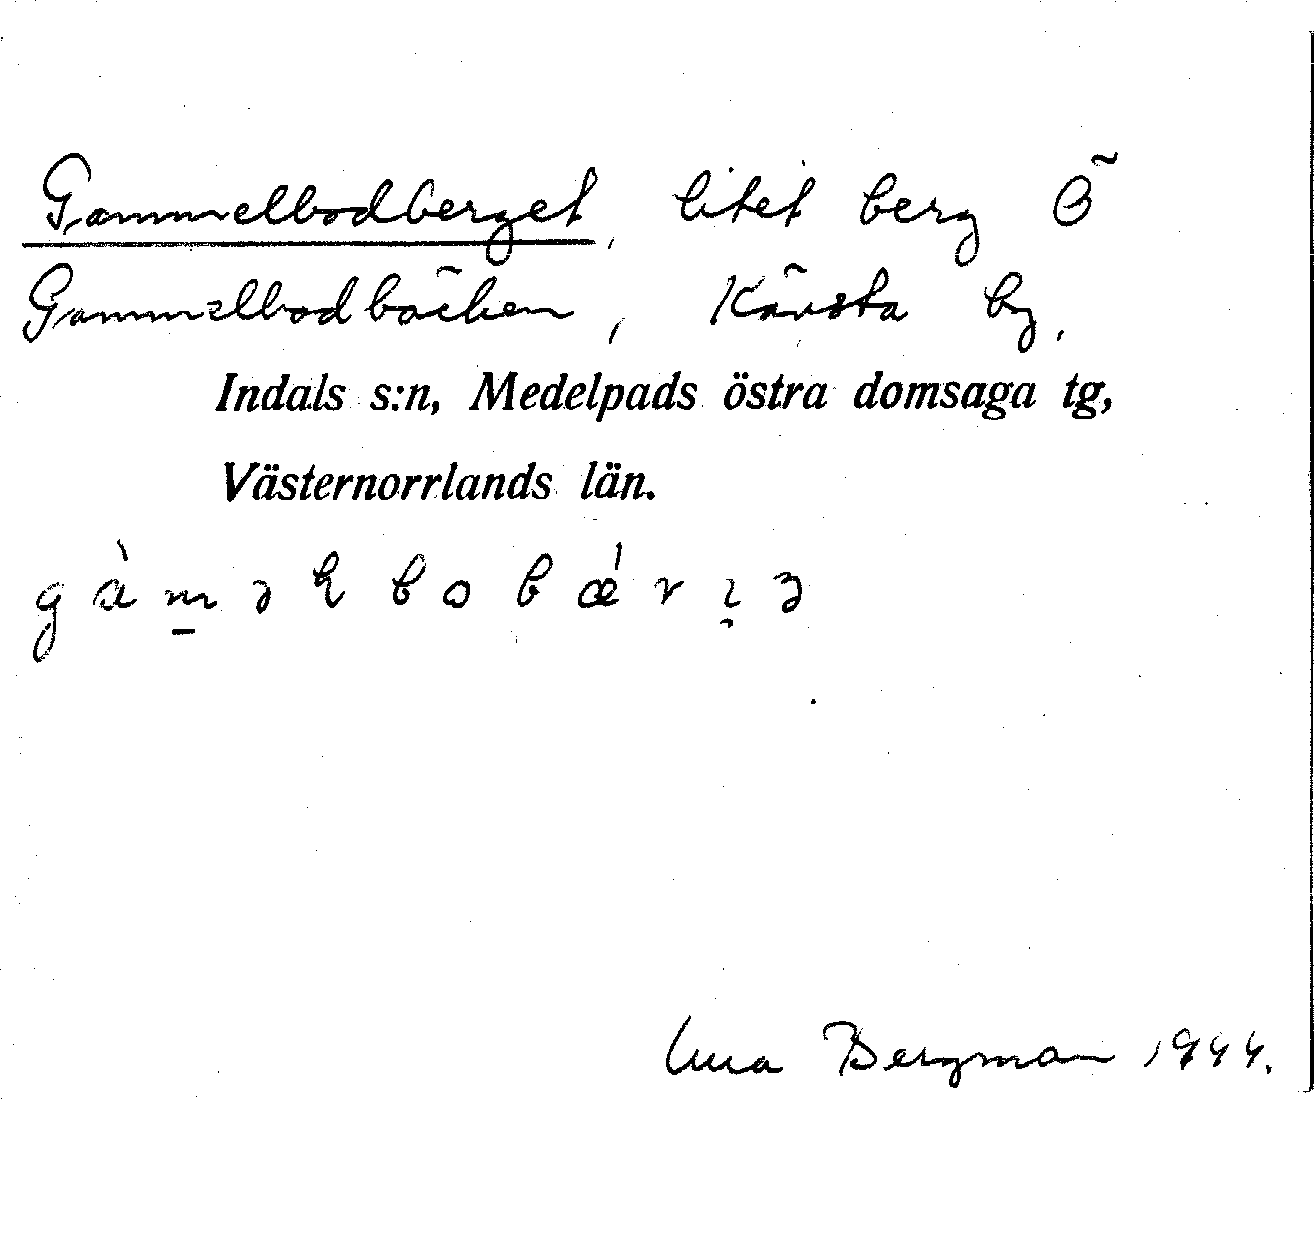 Gammelbodberget, litet berg Ö
Gammelbodbäcken, Kävsta by.
Indals s:n, Medelpads östra domsaga tg,
Västernorrlands län.
Bergman 1944.